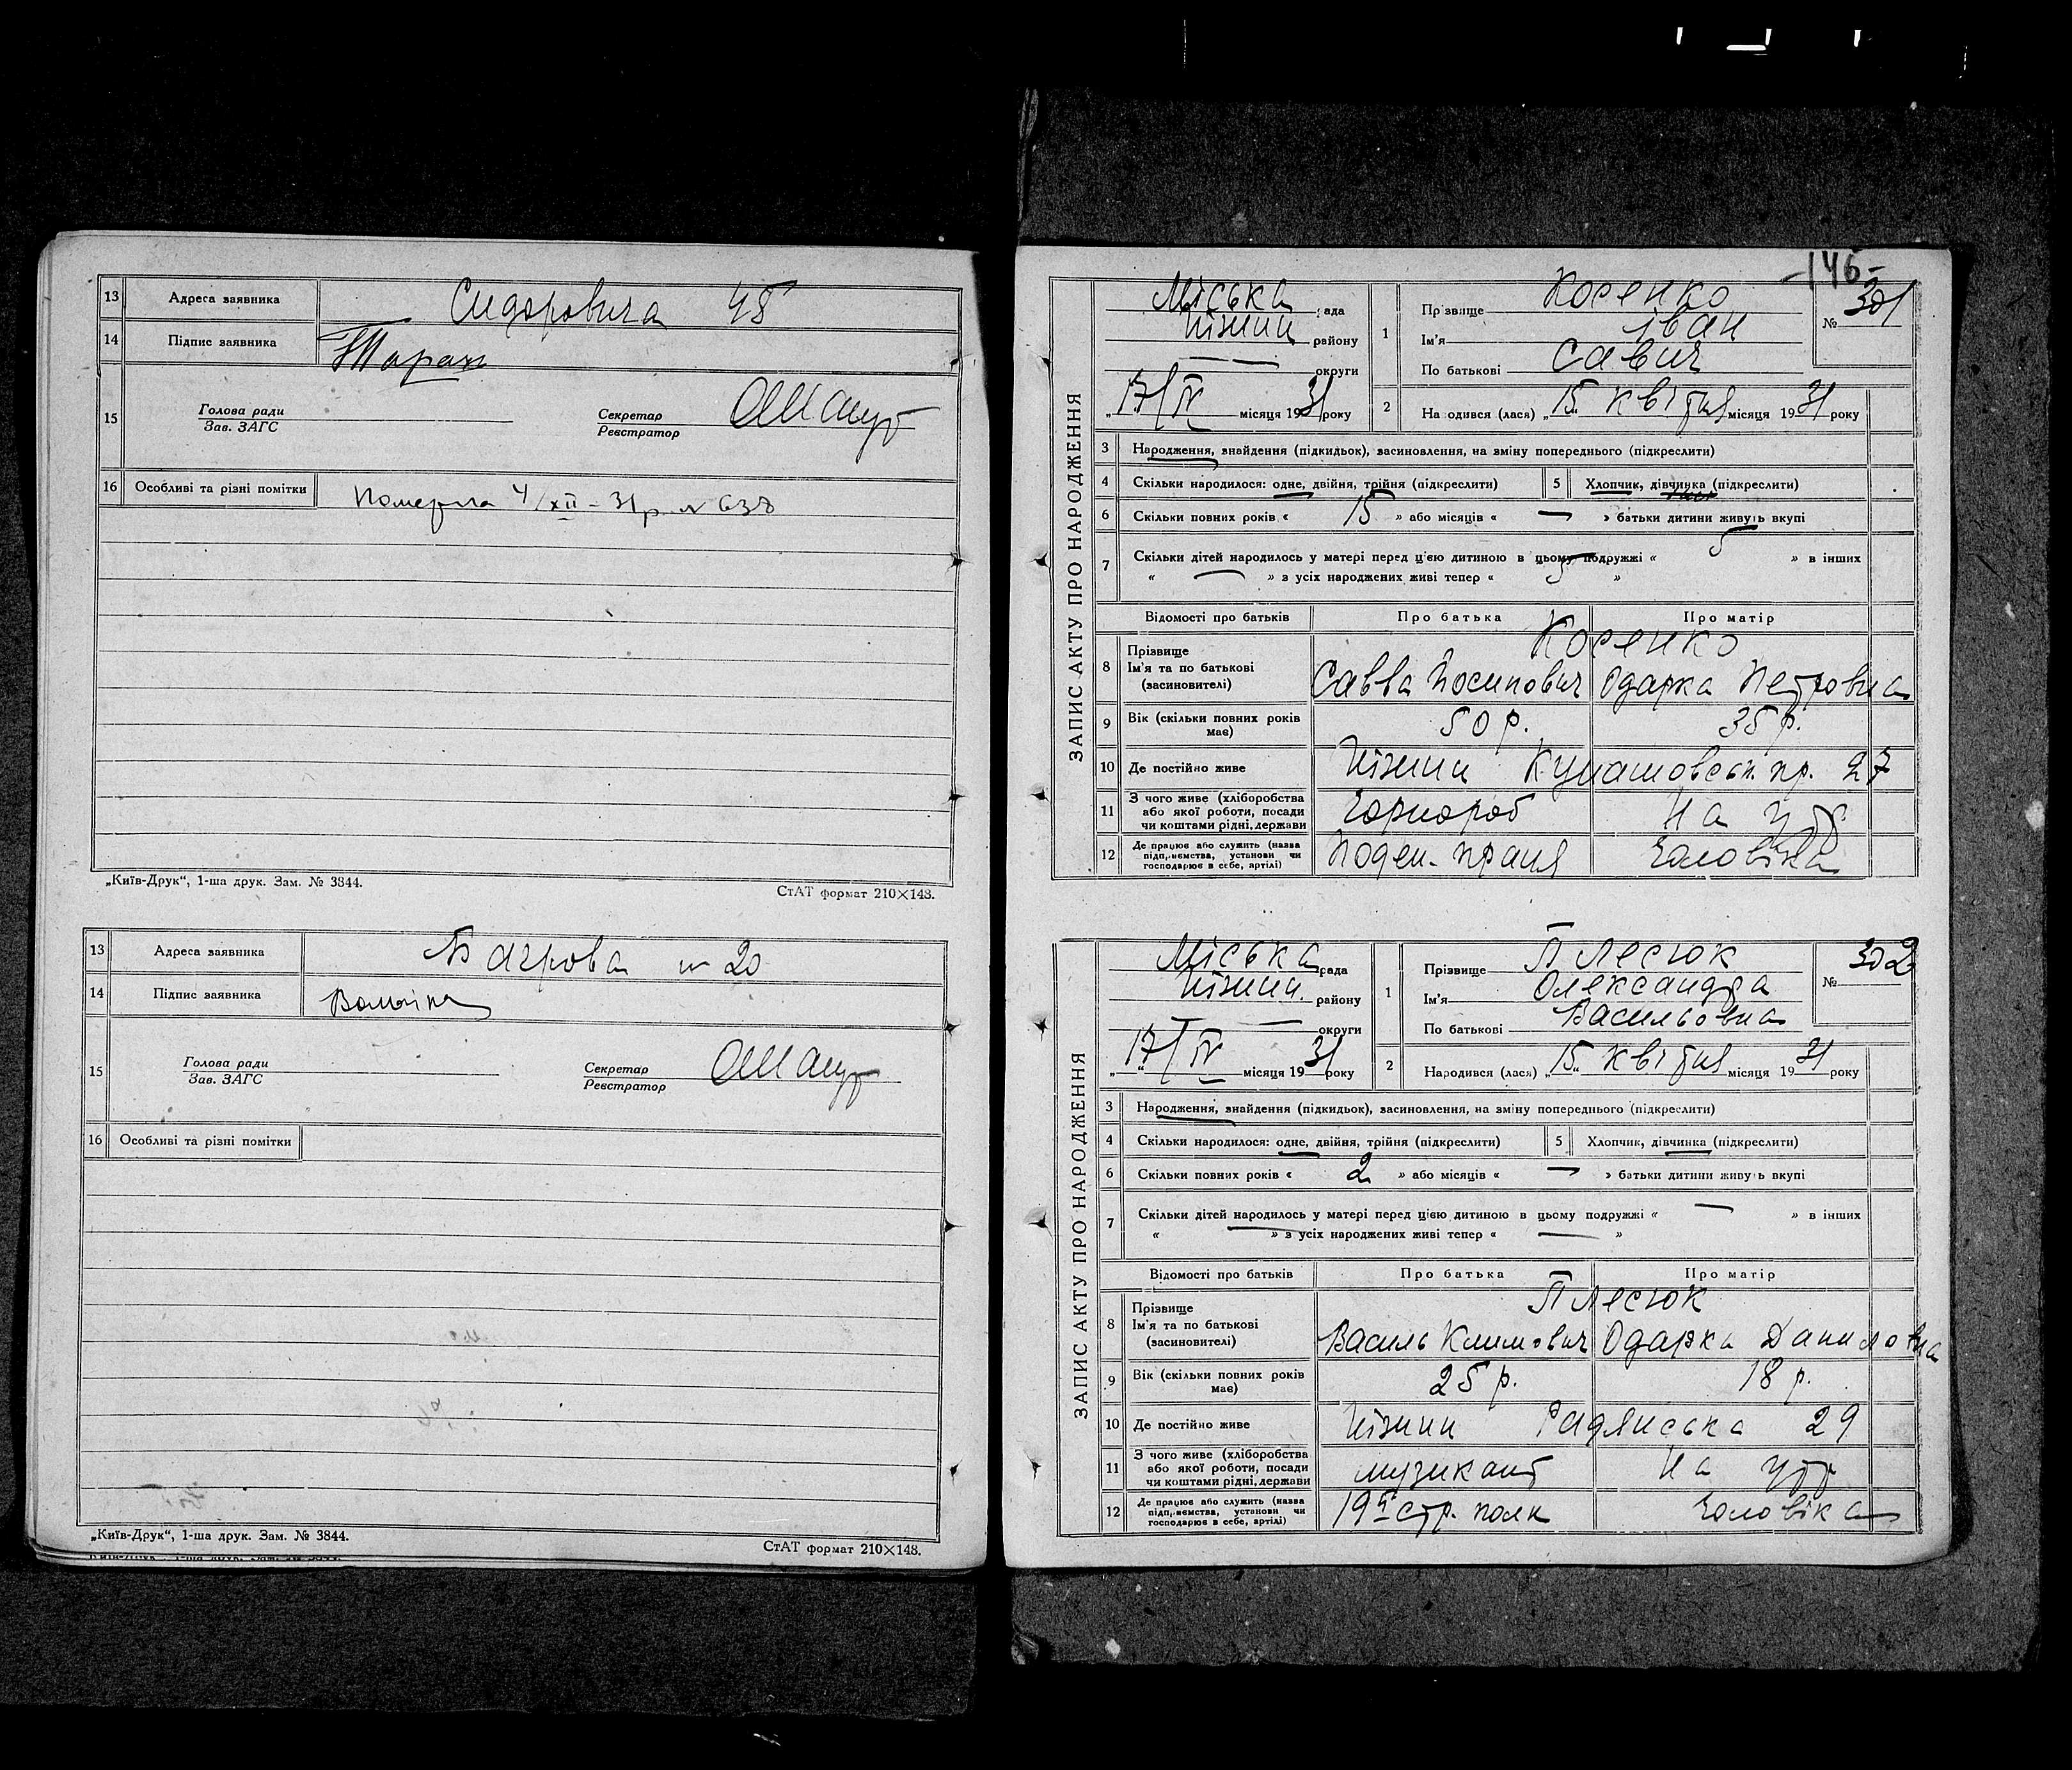 13 Адреса заявника Сидоровича 45
14 Підпис заявника Таран
15 Голова ради Секретар
Зав. ЗАГС Реєстратор
16 Особливі та різні помітки Померла 4/XII – 31 р. № 638
„Київ-Друк“, 1-ша друк. Зам. № 3844. СтАТ формат 210×148.
13 Адреса заявника Багрова № 20
14 Підпис заявника
15 Голова ради Секретар
Зав. ЗАГС Реєстратор
16 Особливі та різні помітки
„Київ-Друк“, 1-ша друк. Зам. № 3844. СтАТ формат 210×148.
-146-
ЗАПИС АКТУ ПРО НАРОДЖЕННЯ
Міська рада
Ніжин району
округи
„17/IV місяця 1931 року
1 Прізвище Косенко
Ім'я Іван
По батькові Савич
№ 301
2 На одився (лася) „15“ квітня місяця 1931 року
3 Народження, знайдення (підкидьок), васиновлення, на зміну попереднього (підкреслити)
4 Скільки народилося: одне, двійня, трійня (підкреслити) 5 Хлопчик, дівчинка (підкреслити)
6 Скільки повних років « 15 » або місяців « — » батьки дитини живуть вкупі
7 Скільки дітей народилось у матері перед цією дитиною в цьому подружжі « 5 » в інших
« — » з усіх народжених живі тепер « 5 »
Відомості про батьків Про батька Про матір
8 Прізвище Косенко
Ім'я та по батькові Савва Йосипович Одарка Петровна
(засиновителі)
9 Вік (скільки повних років має) 50 р. 35 р.
10 Де постійно живе Ніжин Кунашовськ. пр. 27
11 З чого живе (хліборобства або якої роботи, посади чи коштами рідні, держави Чорнороб На утр
12 Де працює або служить (назва підприємства, установи чи господарює в себе, артілі) Поден. праця Чоловіка
ЗАПИС АКТУ ПРО НАРОДЖЕННЯ
Міська рада
Ніжин. району
округи
„17/IV“ місяця 1931 року
1 Прізвище Плесюк
Ім'я Олександра
По батькові Васильовна
№ 302
2 Народився (лася) „15“ квітня місяця 1931 року
3 Народження, знайдення (підкидьок), васиновлення, на зміну попереднього (підкреслити)
4 Скільки народилося: одне, двійня, трійня (підкреслити) 5 Хлопчик, дівчинка (підкреслити)
6 Скільки повних років « 2 » або місяців « — » батьки дитини живуть вкупі
7 Скільки дітей народилось у матері перед цією дитиною в цьому подружжі « — » в інших
« — » з усіх народжених живі тепер « — »
Відомості про батьків Про батька Про матір
8 Прізвище Плесюк
Ім'я та по батькові Василь Климович Одарка Даниловна
(засиновителі)
9 Вік (скільки повних років має) 25 р. 18 р.
10 Де постійно живе Ніжин Радянська 29
11 З чого живе (хліборобства або якої роботи, посади чи коштами рідні, держави музикант На утр
12 Де працює або служить (назва підприємства, установи чи господарює в себе, артілі) 19й стр. полк Чоловіка